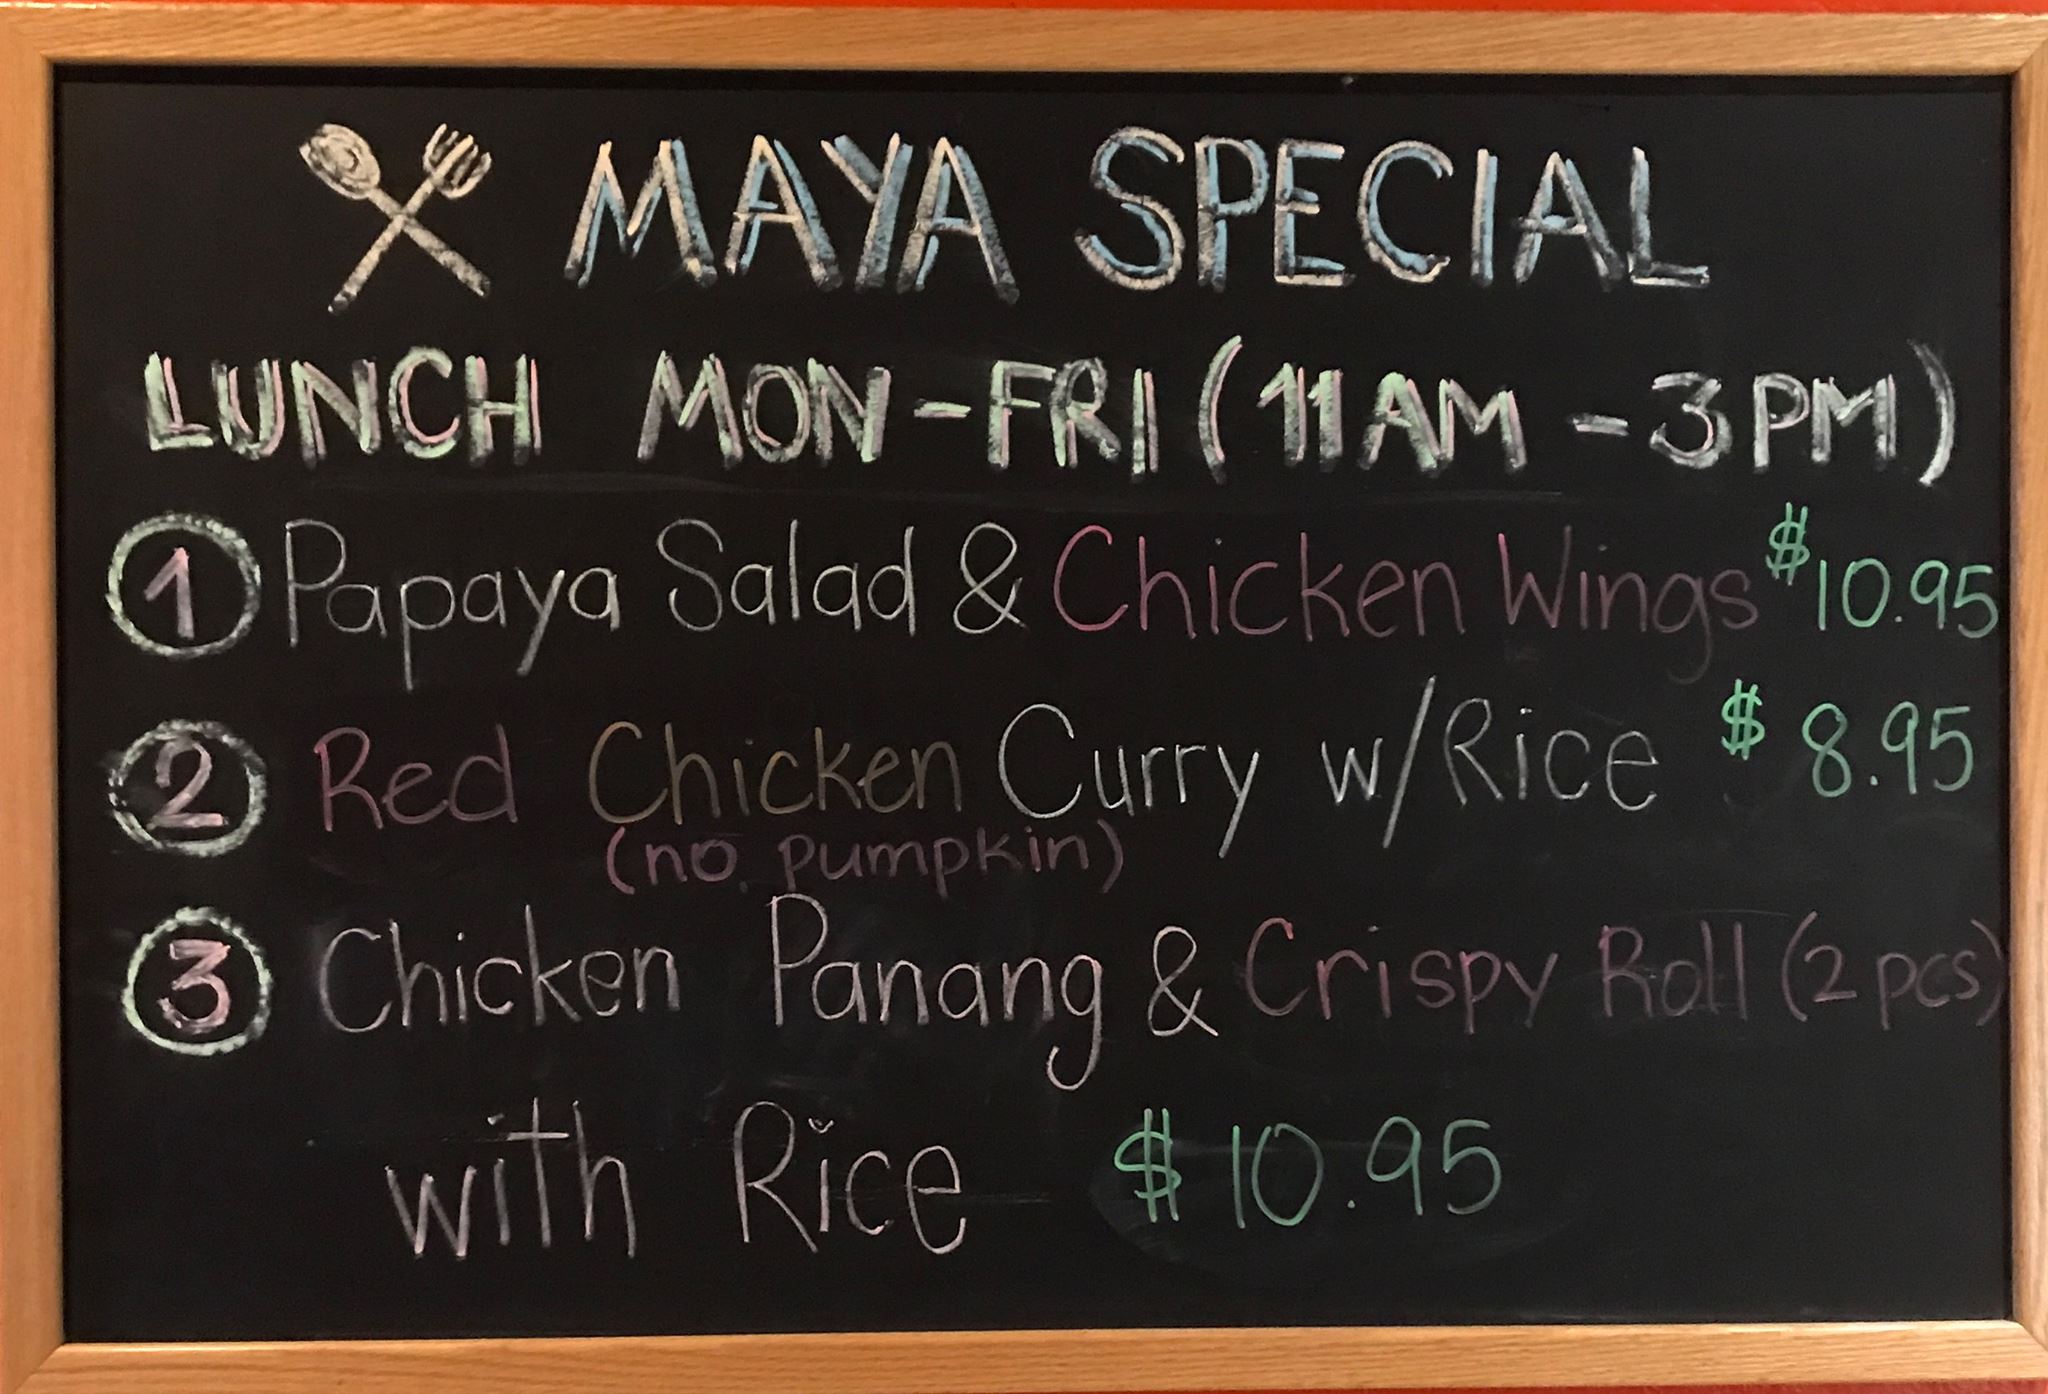 MAYA SPECIAL
LUNCH MON-FRI (11AM - 3PM)
1 Papaya Salad & Chicken Wings $10.95
2 Red Chicken Curry w/Rice $8.95
(no pumpkin)
3 Chicken Panang & Crispy Roll (2 pcs)
with Rice $10.95